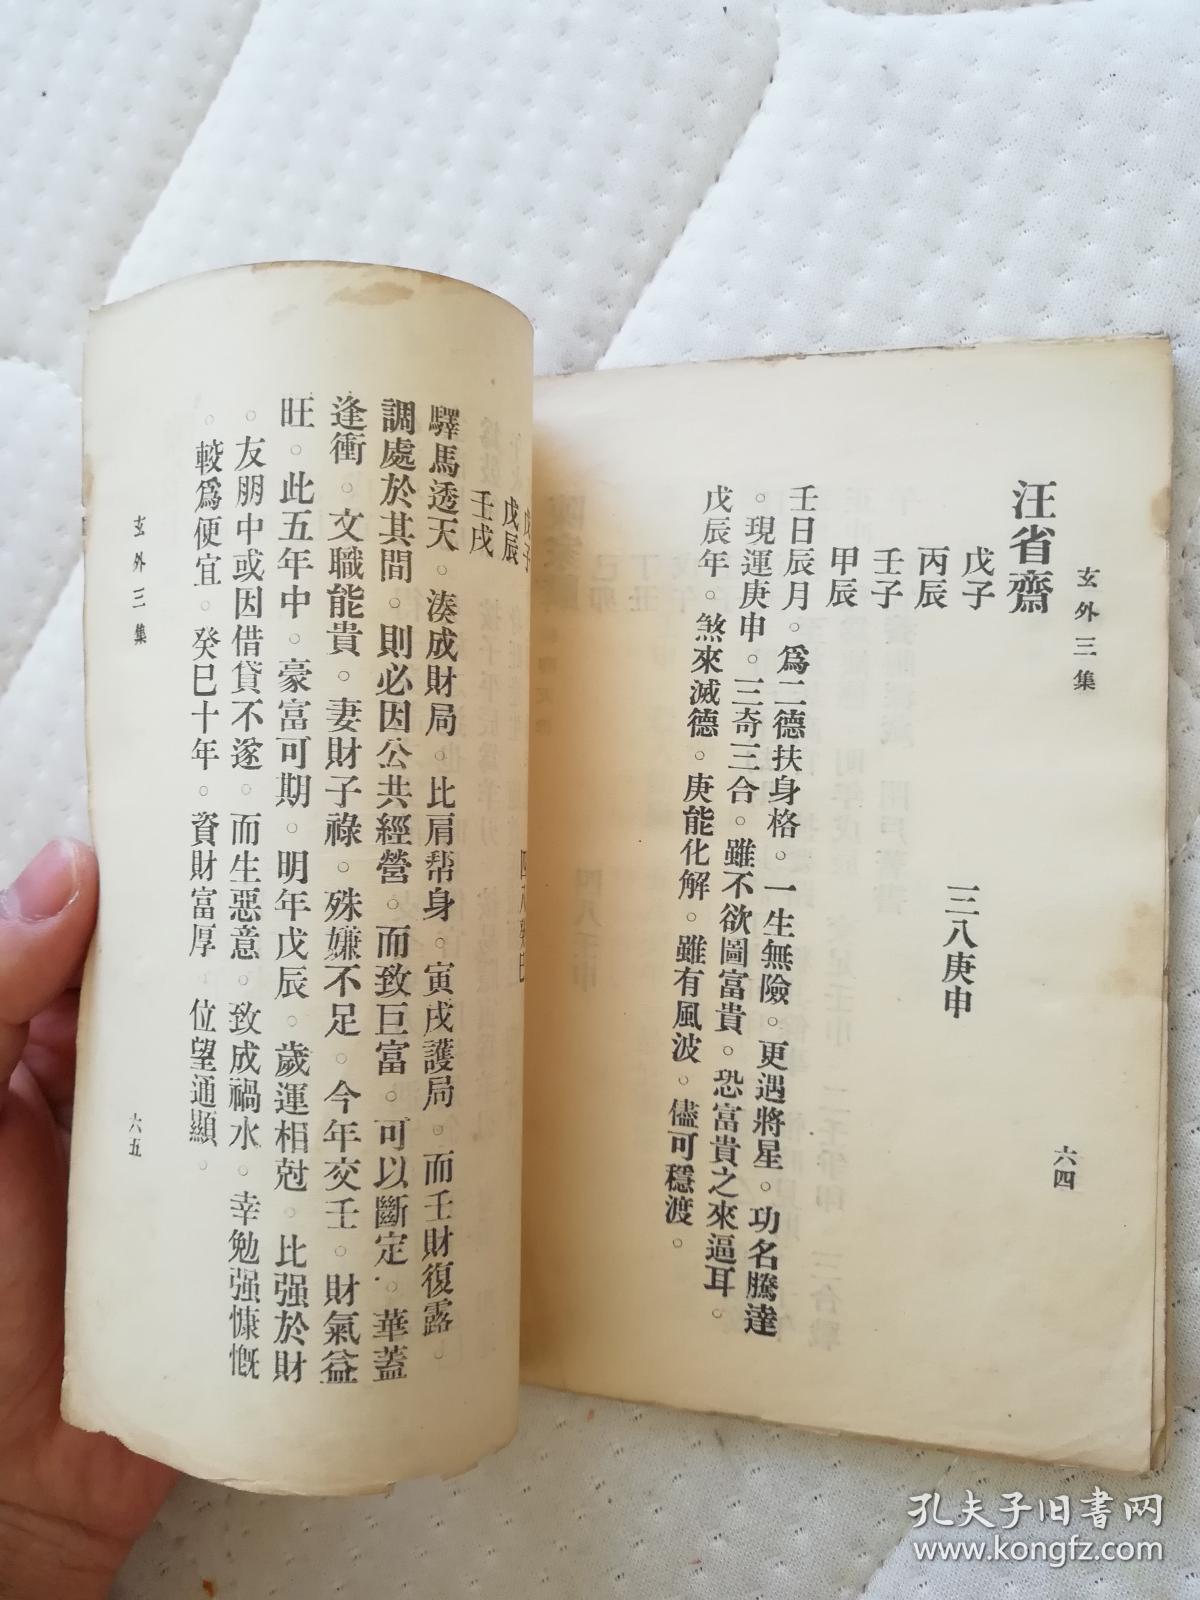 玄外三集
六四
汪省齋
戊子
丙辰
壬子
甲辰
三八庚申
壬日辰月。爲二德扶身格。一生無險。更遇將星。功名騰達
。現運庚申。三奇三合。雖不欲圖富貴。恐富貴之來逼耳。
戊辰年。煞來滅德。庚能化解。雖有風波。儘可穩渡。
戊子
戊辰
壬戌
驛馬透天。湊成財局。比肩幇身。寅戌護局。而壬財復露。
調處於其間。則必因公共經營。而致巨富。可以斷定。華蓋
逢衝。文職能貴。妻財子祿。殊嫌不足。今年交壬。財氣益
旺。此五年中。豪富可期。明年戊辰。歲運相尅。比强於財
。友朋中或因借貸不遂。而生惡意。致成禍水。幸勉强慷慨
。較爲便宜。癸巳十年。資財富厚。位望通顯。
玄外三集
六五
孔夫子旧書网
www.kongfz.com